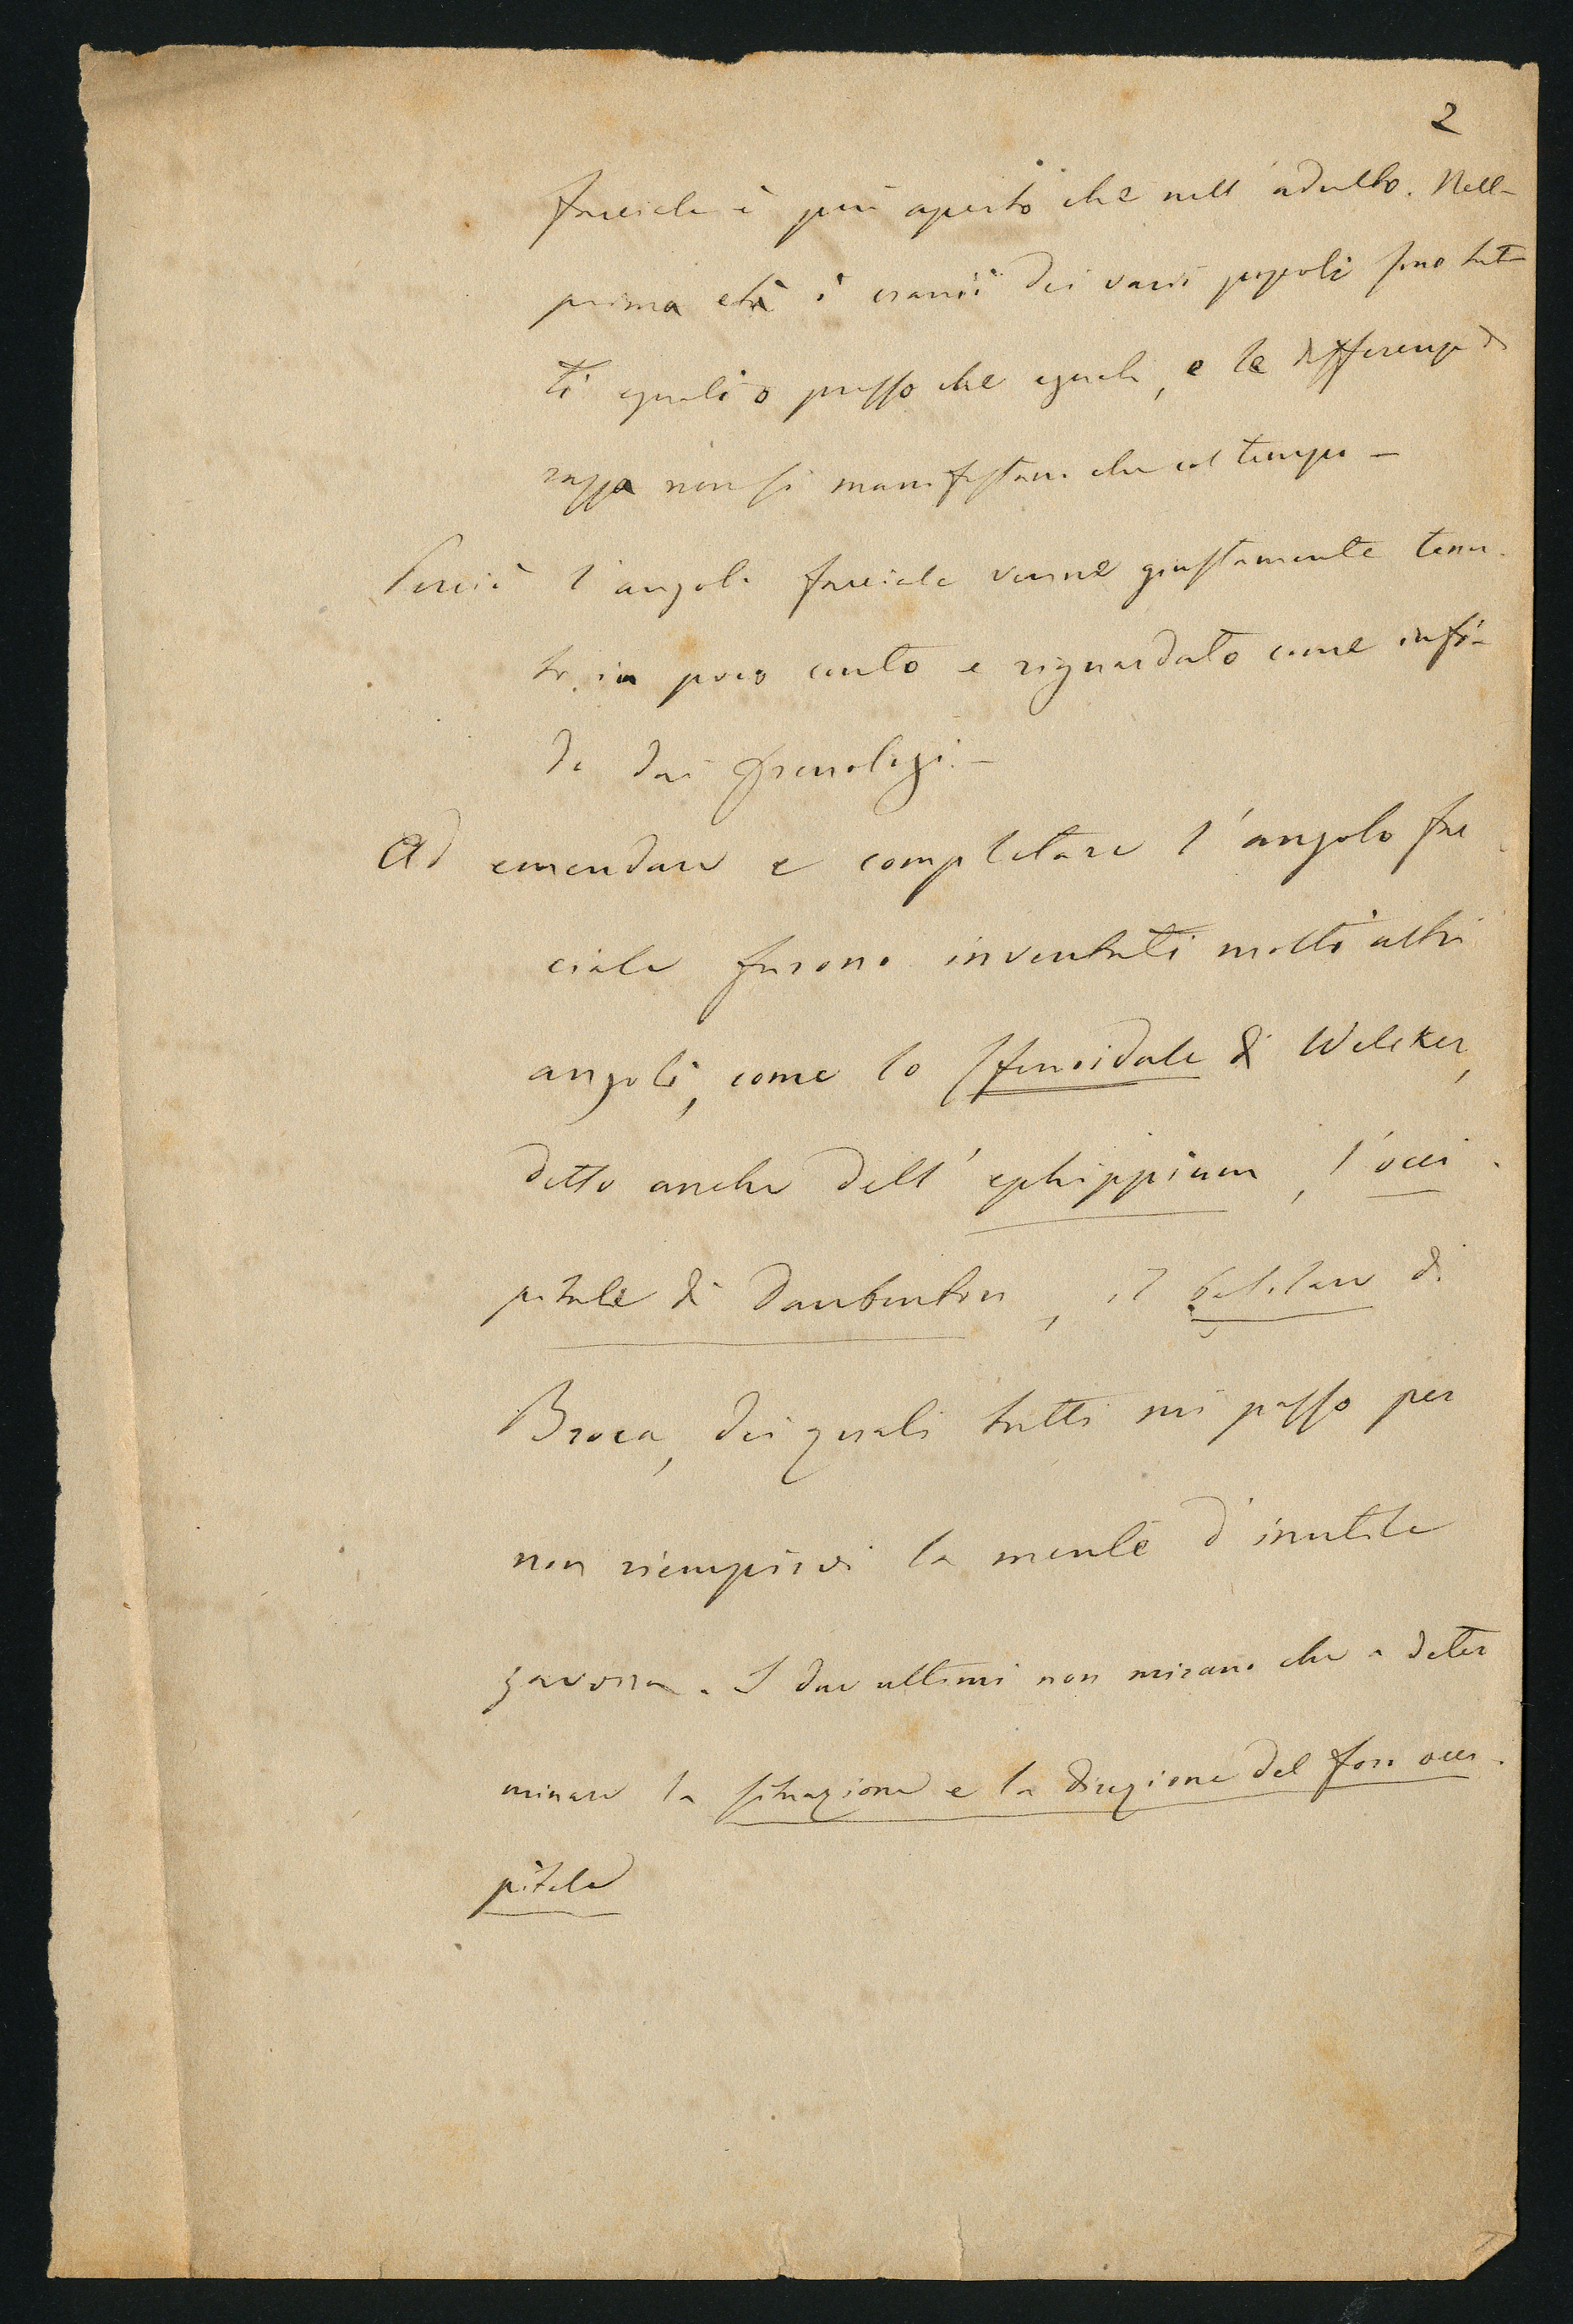 2
facciale è più aperto che nell'adulto. Nella
prima età i cranii dei varii popoli sono tut-
ti eguali o presso che eguali, e le differenze di
razza non si manifestano che col tempo —
Perciò l'angolo facciale venne giustamente tenu-
to in poco conto e riguardato come infi-
do dai frenologi. —
Ad emendare e completare l'angolo fac
ciale furono inventati molti altri
angoli, come lo sfenoidale di Welcker,
detto anche dell'ephippium, l'occi-
pitale di Daubenton, il basilare di
Broca, dei quali tutti mi passo per
non riempirvi la mente d'inutile
zavorra. I due ultimi non mirano che a deter
minare la situazione e la direzione del foro occi-
pitale